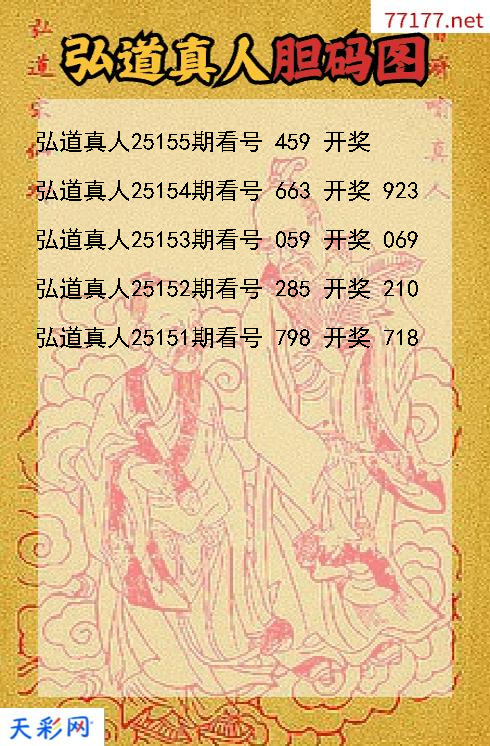 77177.net
弘道真人胆码图
弘道真人25155期看号 459 开奖
弘道真人25154期看号 663 开奖 923
弘道真人25153期看号 059 开奖 069
弘道真人25152期看号 285 开奖 210
弘道真人25151期看号 798 开奖 718
天彩网